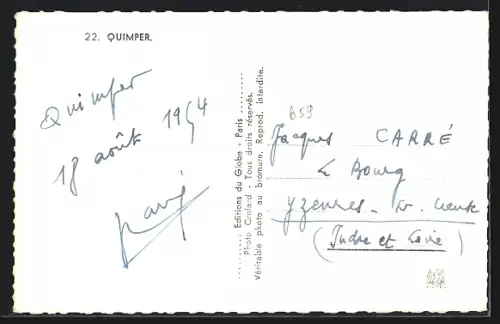 22. QUIMPER.
Quimper
18 août 1954
Editions du Globe - Paris
Photo Crolard - Tous droits réservés.
Véritable photo au bromure. Reprod. interdite.
659
Jacques CARRÉ
Le Bourg
Yzeures
(Indre et Loire)